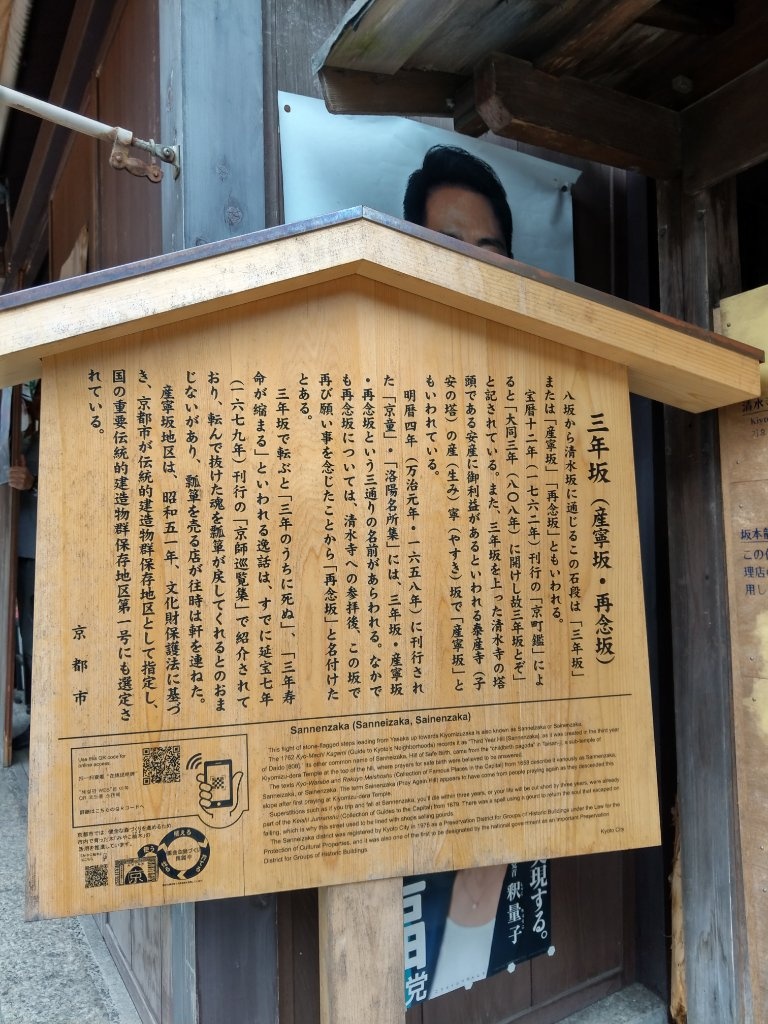 三年坂（産寧坂・再念坂）
八坂から清水坂に通じるこの石段は「三年坂」
または「産寧坂」「再念坂」ともいわれる。
宝暦十二年（一七六二年）刊行の「京町鑑」によ
ると「大同三年（八〇八年）に開けし故三年坂とぞ」
と記されている。また、三年坂を上った清水寺の塔
頭である安産に御利益があるといわれる泰産寺（子
安の塔）の産（生み）寧（やすき）坂で「産寧坂」と
もいわれている。
明暦四年（万治元年・一六五八年）に刊行され
た「京童」・「洛陽名所集」には、三年坂・産寧坂
・再念坂という三通りの名前があらわれる。なかで
も再念坂については、清水寺への参拝後、この坂で
再び願い事を念じたことから「再念坂」と名付けた
とある。
三年坂で転ぶと「三年のうちに死ぬ」、「三年寿
命が縮まる」といわれる逸話は、すでに延宝七年
（一六七九年）刊行の「京師巡覧集」で紹介されて
おり、転んで抜けた魂を瓢箪が戻してくれるとのおま
じないがあり、瓢箪を売る店が往時は軒を連ねた。
産寧坂地区は、昭和五一年、文化財保護法に基づ
き、京都市が伝統的建造物群保存地区として指定し、
国の重要伝統的建造物群保存地区第一号にも選定さ
れている。
京都市
Sannenzaka (Sanneizaka, Sainenzaka)
This flight of stone-flagged steps leading from Yasaka up towards Kiyomizuzaka is also known as Sanneizaka or Sainenzaka.
The 1762 Kyo-Machi Kagami (Guide to Kyoto's Neighborhoods) records it as "Third Year Hill (Sannenzaka), as it was created in the third year
of Daido [808]. Its other common name of Sanneizaka, Hill of Safe Birth, came from the "childbirth pagoda" in Taisan-ji, a sub-temple of
Kiyomizu-dera Temple at the top of the hill, where prayers for safe birth were believed to be answered.
The texts Kyo-Warabe and Rakuyo-Meishoshu (Collection of Famous Places in the Capital) from 1658 describe it variously as Sannenzaka,
Sanneizaka, or Sainenzaka. The term Sainenzaka (Pray Again Hill) appears to have come from people praying again as they descended this
slope after first praying at Kiyomizu-dera Temple.
Superstitions such as if you trip and fall at Sannenzaka, you'll die within three years, or your life will be cut short by three years, were already
part of the Keishi Junranshu (Collection of Guides to the Capital) from 1679. There was a spell using a gourd to return the soul that escaped on
falling, which is why this street used to be lined with shops selling gourds.
The Sanneizaka district was registered by Kyoto City in 1976 as a Preservation District for Groups of Historic Buildings under the Law for the
Protection of Cultural Properties, and it was also one of the first to be designated by the national government as an Important Preservation
District for Groups of Historic Buildings.
Kyoto City
Use this QR code for
online access.
詳細はこちらのQRコードへ
京都市では、健全な森づくりを進めるため、
市内で育った木「みやこ杣木」の
活用を推進しています。
植える
育てる
使う
京
実現する。
釈量子
党
清水
Kiyo
坂本龍
この
理店
用し